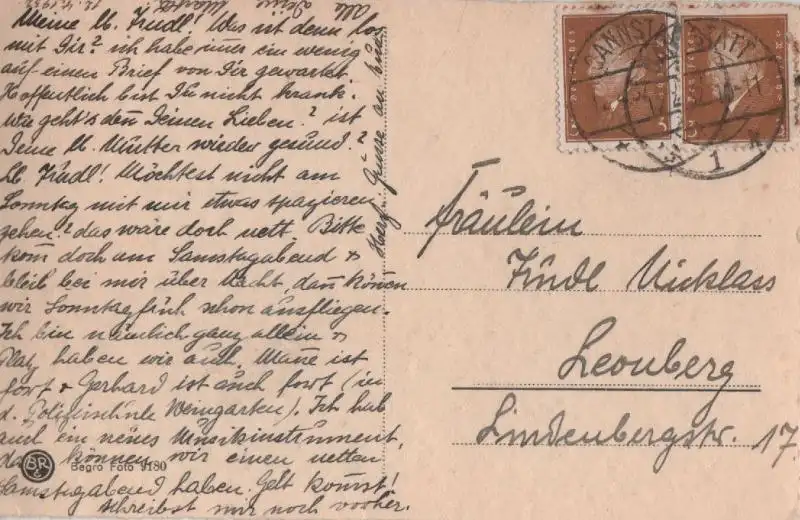 Meine lb. Trudl! Was ist denn los
mit Dir? ich habe imer ein wenig
auf einen Brief von Dir gewartet.
Hoffentlich bist Du nicht krank.
Wie geht's den Deinen Lieben? ist
Deine lb. Mutter wieder gesund?
Lb. Trudl! Möchtest nicht am
Sonntag mit mir etwas spazieren
gehen? das wäre doch nett. Bitte
kom doch am Samstagabend &
bleib bei mir über Nacht, dan können
wir Sonntag früh schon ausfliegen.
Ich bin nämlich ganz allein &
Platz haben wir auch, Mane ist
fort & Gerhard ist auch fort (in
d. Polizeischule Weingarten). Ich hab
auch ein neues Musikinstrument,
da können wir einen netten
Samstagabend haben. Gelt komst!
schreibst mir noch vorher.
Herzl. Grüsse an
Alle Deine
CANNSTATT
1
Fräulein
Trudl Nicklass
Leonberg
Lindenbergstr. 17.
BR
Begro Foto 9180